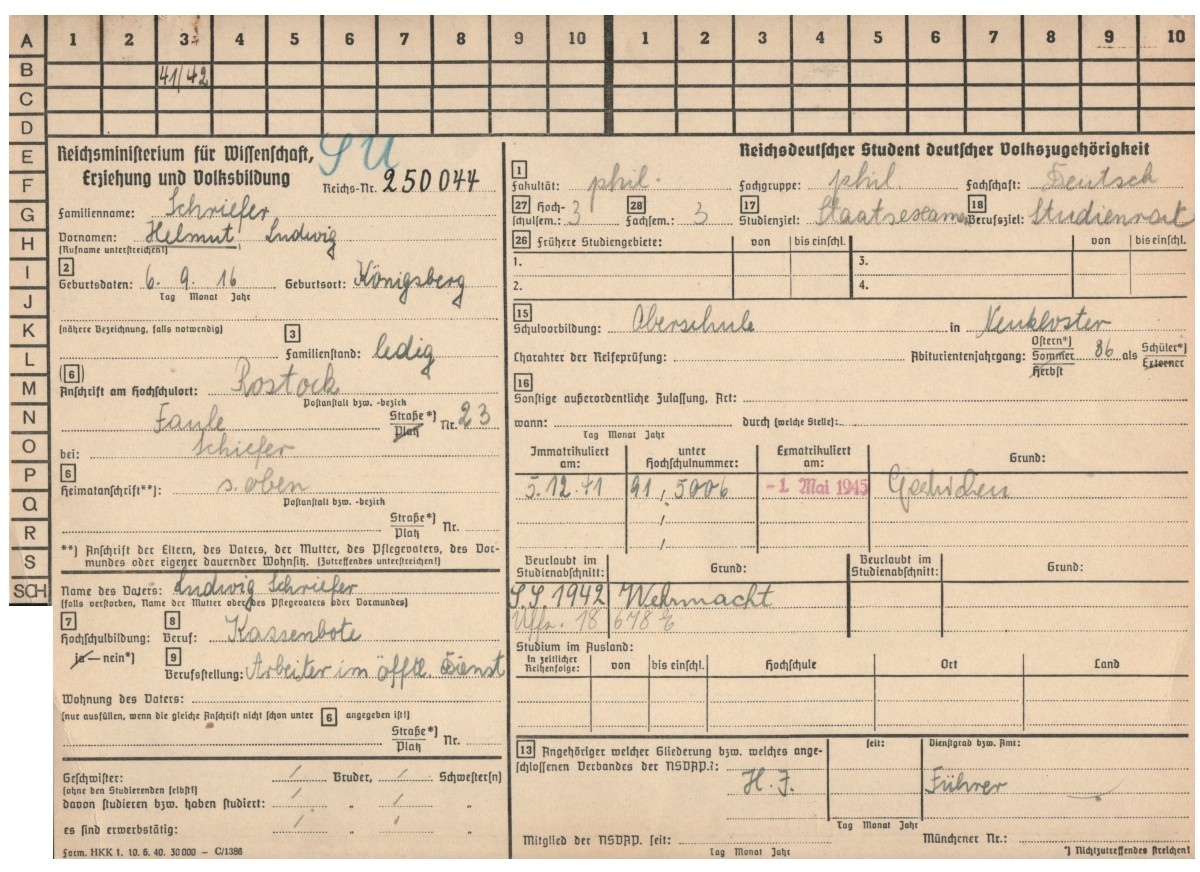 A 1 2 3 4 5 6 7 8 9 10 1 2 3 4 5 6 7 8 9 10
B 41/42
C
D
E
F
G
H
I
J
K
L
M
N
O
P
Q
R
S
SCH
SU
Reichsministerium für Wissenschaft,
Erziehung und Volksbildung Reichs-Nr. 250044
Familienname: Schriefer
Vornamen: Helmut Ludwig
(Rufname unterstreichen!)
2
Geburtsdaten: 6. 9. 16 Geburtsort: Königsberg
Tag Monat Jahr
(nähere Bezeichnung, falls notwendig) 3
Familienstand: ledig
(6)
Anschrift am Hochschulort: Rostock
Postanstalt bzw. -bezirk
Faule Straße*) Nr. 23
Platz
bei: Schiefer
6
Heimatanschrift**): s. oben
Postanstalt bzw. -bezirk
Straße*) Nr.
Platz
**) Anschrift der Eltern, des Vaters, der Mutter, des Pflegevaters, des Vor-
mundes oder eigener dauernder Wohnsitz. (Zutreffendes unterstreichen!)
Name des Vaters: Ludwig Schriefer
(falls verstorben, Name der Mutter oder des Pflegevaters oder Vormundes)
7 8
Hochschulbildung: Beruf: Kassenbote
ja — nein*) 9
Berufsstellung: Arbeiter im öfftl. Dienst
Wohnung des Vaters:
(nur ausfüllen, wenn die gleiche Anschrift nicht schon unter 6 angegeben ist!)
Straße*) Nr.
Platz
Geschwister: / Bruder, / Schwester(n)
(ohne den Studierenden selbst!)
davon studieren bzw. haben studiert: / " / "
es sind erwerbstätig: / " / "
Form. HKK 1. 10. 6. 40. 30000 – C/1386
Reichsdeutscher Student deutscher Volkszugehörigkeit
1
Fakultät: phil. Fachgruppe: phil. Fachschaft: Deutsch
27 Hoch- 28 17 18
schulsem.: 3 Fachsem.: 3 Studienziel: Staatsexamen Berufsziel: Studienrat
26 Frühere Studiengebiete: von bis einschl. von bis einschl.
1. 3.
2. 4.
15
Schulvorbildung: Oberschule in Neukloster
Charakter der Reifeprüfung: Abiturientenjahrgang: Ostern*) Sommer Herbst 36 als Schüler*) Externer
16
Sonstige außerordentliche Zulassung, Art:
wann: durch (welche Stelle):
Tag Monat Jahr
Immatrikuliert am: unter Hochschulnummer: Exmatrikuliert am: Grund:
5.12.41 91, 5006 -1. Mai 1945 Gestrichen
Beurlaubt im Studienabschnitt: Grund: Beurlaubt im Studienabschnitt: Grund:
S.S. 1942 Wehrmacht
Uffz. 18 678
Studium im Ausland:
In zeitlicher Reihenfolge: von bis einschl. Hochschule Ort Land
13 Angehöriger welcher Gliederung bzw. welches ange- seit: Dienstgrad bzw. Amt:
schlossenen Verbandes der NSDAP.?:
H. J. Führer
Tag Monat Jahr
Mitglied der NSDAP. seit: Münchener Nr.:
Tag Monat Jahr *) Nichtzutreffendes streichen!